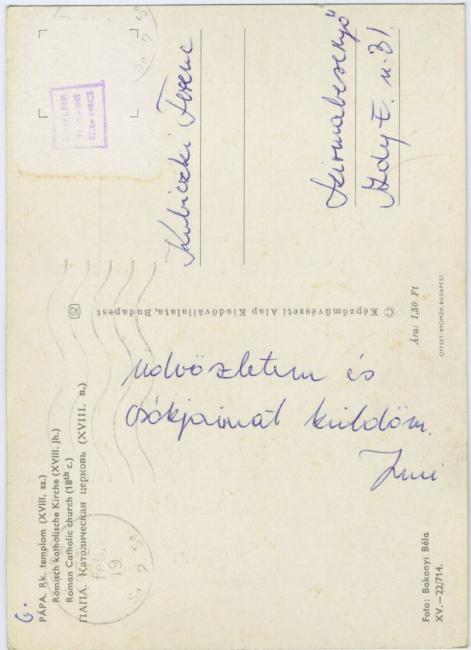 PÁPA. Rk. templom (XVIII. sz.)
Römisch katholische Kirche (XVIII. Jh.)
Roman Catholic church (18th c.)
ПАПА. Католическая церковь (XVIII. в.)
Üdvözletem és
csókjaimat küldöm.
© Képzőművészeti Alap Kiadóvállalata, Budapest
Kubiczki Ferenc
Szirmabesenyő
Ady E. u. 31.
Ára: 1,50 Ft
OFFSET-NYOMDA BUDAPEST
Foto: Bakonyi Béla
XV.—22/714.